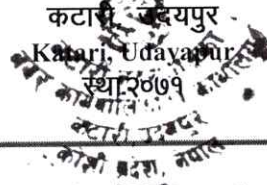 कटारी, उदयपुर
Katari, Udayapur
स्था.२०७१
कटारी, उदयपुर
कोशी प्रदेश, नेपाल